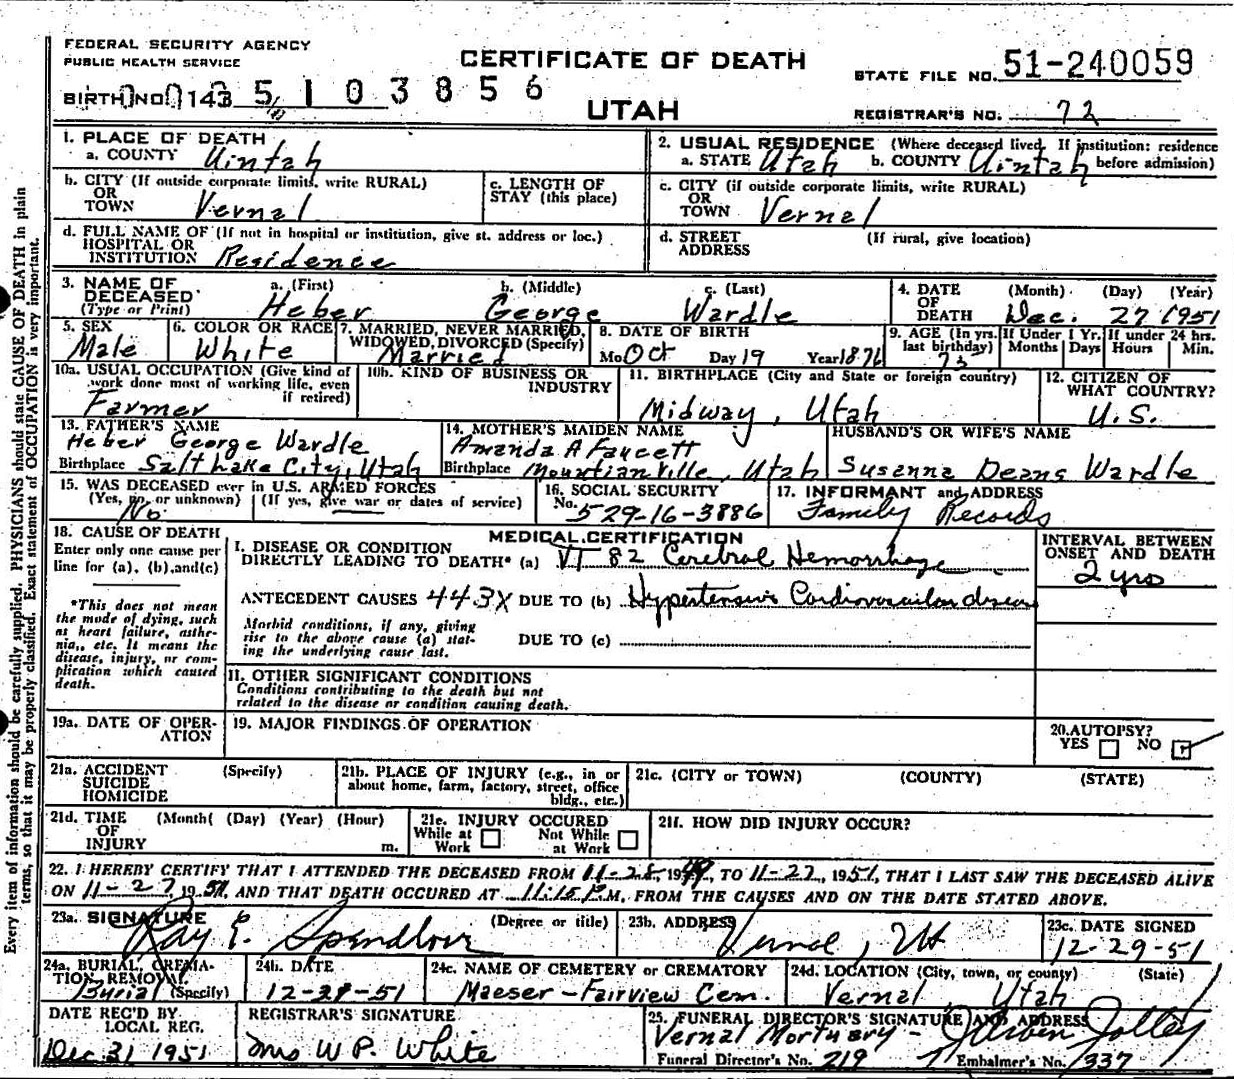 FEDERAL SECURITY AGENCY
PUBLIC HEALTH SERVICE
CERTIFICATE OF DEATH
STATE FILE NO. 51-240059
BIRTH NO. 143 5103856
UTAH
REGISTRAR'S NO. 72
1. PLACE OF DEATH
a. COUNTY Uintah
2. USUAL RESIDENCE (Where deceased lived. If institution: residence before admission)
a. STATE Utah b. COUNTY Uintah
b. CITY (If outside corporate limits, write RURAL)
OR
TOWN Vernal
c. LENGTH OF
STAY (this place)
c. CITY (if outside corporate limits, write RURAL)
OR
TOWN Vernal
d. FULL NAME OF (If not in hospital or institution, give st. address or loc.)
HOSPITAL OR
INSTITUTION Residence
d. STREET (If rural, give location)
ADDRESS
3. NAME OF DECEASED (Type or Print)
a. (First) b. (Middle) c. (Last)
Heber George Wardle
4. DATE OF DEATH (Month) (Day) (Year)
Dec. 27 1951
5. SEX
Male
6. COLOR OR RACE
White
7. MARRIED, NEVER MARRIED,
WIDOWED, DIVORCED (Specify)
Married
8. DATE OF BIRTH
Mo Oct Day 19 Year 1876
9. AGE (In yrs. last birthday)
75
If Under 1 Yr.
Months Days
If under 24 hrs.
Hours Min.
10a. USUAL OCCUPATION (Give kind of
work done most of working life, even
if retired)
Farmer
10b. KIND OF BUSINESS OR
INDUSTRY
11. BIRTHPLACE (City and State or foreign country)
Midway, Utah
12. CITIZEN OF
WHAT COUNTRY?
U.S.
13. FATHER'S NAME
Heber George Wardle
Birthplace Salt Lake City, Utah
14. MOTHER'S MAIDEN NAME
Amanda A Faucett
Birthplace Mountianville, Utah
HUSBAND'S OR WIFE'S NAME
Susanna Deans Wardle
15. WAS DECEASED ever in U.S. ARMED FORCES
(Yes, no, or unknown) (If yes, give war or dates of service)
No
16. SOCIAL SECURITY
No. 529-16-3886
17. INFORMANT and ADDRESS
Family Records
18. CAUSE OF DEATH
Enter only one cause per
line for (a), (b), and (c)
*This does not mean
the mode of dying, such
as heart failure, asthe-
nia, etc. It means the
disease, injury, or com-
plication which caused
death.
MEDICAL CERTIFICATION
I. DISEASE OR CONDITION
DIRECTLY LEADING TO DEATH* (a) VT 82 Cerebral Hemorrhage
ANTECEDENT CAUSES 443X DUE TO (b) Hypertensive Cardiovascular disease
Morbid conditions, if any, giving
rise to the above cause (a) stat-
ing the underlying cause last.
DUE TO (c)
II. OTHER SIGNIFICANT CONDITIONS
Conditions contributing to the death but not
related to the disease or condition causing death.
INTERVAL BETWEEN
ONSET AND DEATH
2 yrs
19a. DATE OF OPER-
ATION
19. MAJOR FINDINGS OF OPERATION
20. AUTOPSY?
YES NO
21a. ACCIDENT (Specify)
SUICIDE
HOMICIDE
21b. PLACE OF INJURY (e.g., in or
about home, farm, factory, street, office
bldg., etc.)
21c. (CITY or TOWN) (COUNTY) (STATE)
21d. TIME (Month( (Day) (Year) (Hour)
OF
INJURY m.
21e. INJURY OCCURED
While at Work Not While at Work
21f. HOW DID INJURY OCCUR?
22. I HEREBY CERTIFY THAT I ATTENDED THE DECEASED FROM 11-28, 1949, TO 11-27, 1951, THAT I LAST SAW THE DECEASED ALIVE
ON 11-27 1951, AND THAT DEATH OCCURED AT 11:15 P.M. FROM THE CAUSES AND ON THE DATE STATED ABOVE.
23a. SIGNATURE (Degree or title)
Ray E. Spendlove
23b. ADDRESS
Vernal, Ut
23c. DATE SIGNED
12-29-51
24a. BURIAL, CREMA-
TION, REMOVAL
Burial (Specify)
24b. DATE
12-29-51
24c. NAME OF CEMETERY or CREMATORY
Maeser-Fairview Cem.
24d. LOCATION (City, town, or county) (State)
Vernal, Utah
DATE REC'D BY
LOCAL REG.
Dec 31 1951
REGISTRAR'S SIGNATURE
Mrs W P. White
25. FUNERAL DIRECTOR'S SIGNATURE AND ADDRESS
Vernal Mortuary - Jolley
Funeral Director's No. 219 Embalmer's No. 337
Every item of information should be carefully supplied. PHYSICIANS should state CAUSE OF DEATH in plain
terms, so that it may be properly classified. Exact statement of OCCUPATION is very important.